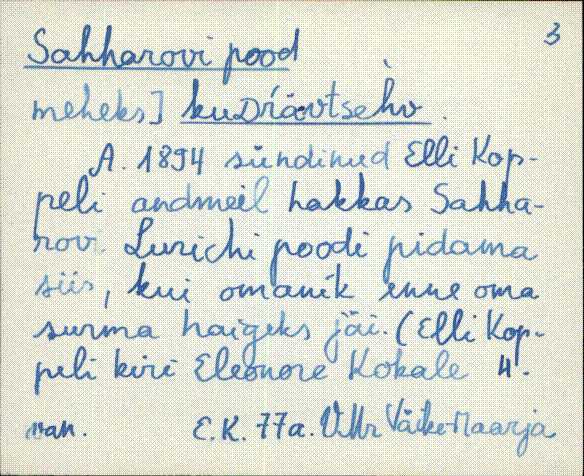 3
Sahharovi pood
meheks] kudrävtsehv.
A. 1894 sündinud Elli Kop-
peli andmeil hakkas Sahha-
rov Lurichi poodi pidama
siis, kui omanik enne oma
surma haigeks jäi. (Elli Kop-
peli kiri Eleonore Kokale 4.
E.K. 77a. VMr Väike-Maarja